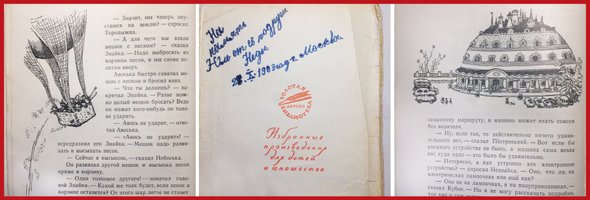 — Значит, мы теперь опу-
стимся на землю? — спросил
Торопыжка.
— А для чего мы взяли
мешки с песком? — сказал
Знайка. — Надо выбросить из
корзины песок, и мы снова по-
летим вверх.
Авоська быстро схватил ме-
шок с песком и бросил вниз.
— Что ты делаешь? — за-
кричал Знайка. — Разве мож-
но целый мешок бросать? Ведь
он может кого-нибудь по голо-
ве ударить.
— Авось не ударит! — от-
ветил Авоська.
— «Авось не ударит»! —
передразнил его Знайка. — Мешок надо развя-
зать и высыпать песок.
— Сейчас я высыплю, — сказал Небоська.
Он развязал другой мешок и высыпал песок
прямо в корзину.
— Один толковее другого! — покачал голо-
вой Знайка. — Какой же толк будет, если песок
в корзине останется? От этого шар легче не станет
На
память
Юле от её подруги
Нади
X. 1983 год г. Москва.
ЗОЛОТАЯ
БИБЛИОТЕКА
ДЕТГИЗ
Избранные
произведения
для детей
и юношества
заданному маршруту, и машина может ехать совсем
без водителя.
— Ну, если так, то действительно ничего удиви-
тельного нет, — сказал Пёстренький. — Вот если бы
никакого устройства не было, а машина сама везла
вас куда надо — это было бы удивительно.
— Интересно, а как устроено это электронное
устройство? — спросил Незнайка. — Оно, что ли, на
электрических лампочках или ещё как?
— Оно не на лампочках, а на полупроводниках, —
сказал Кубик. — Но я не могу рассказать подробно,